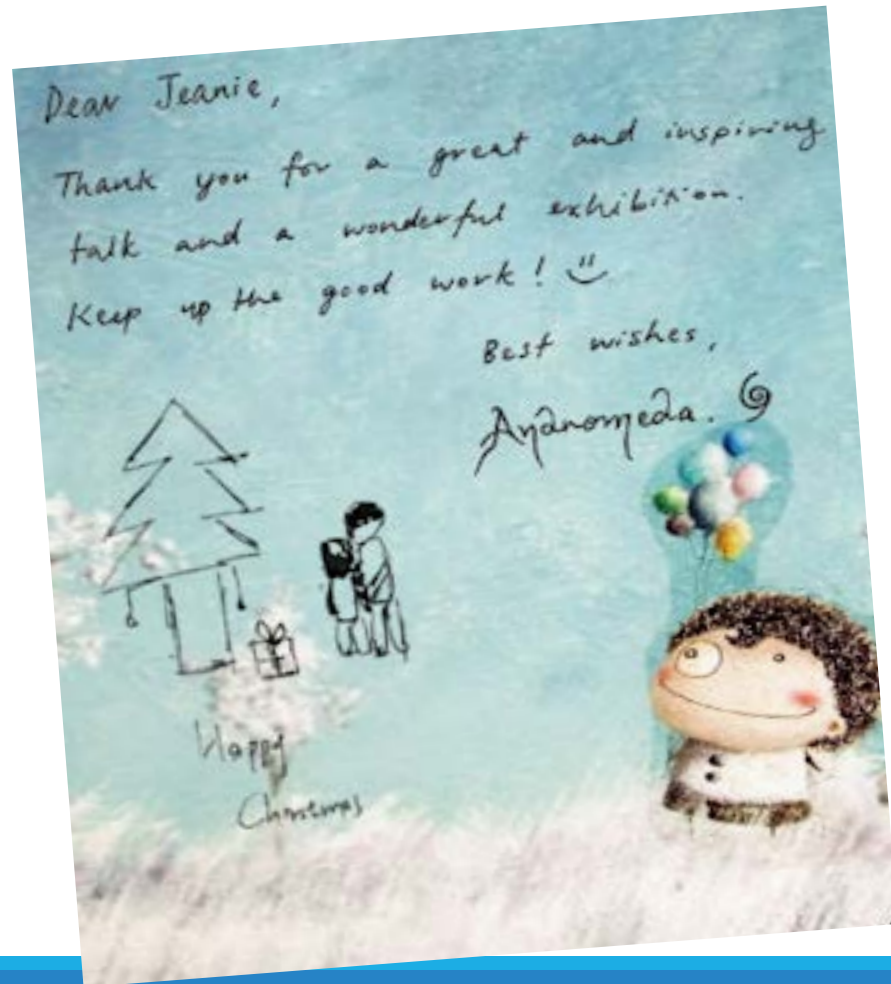 Dear Jeanie,
Thank you for a great and inspiring
talk and a wonderful exhibition.
Keep up the good work!
Best wishes,
Andromeda.
Happy
Christmas